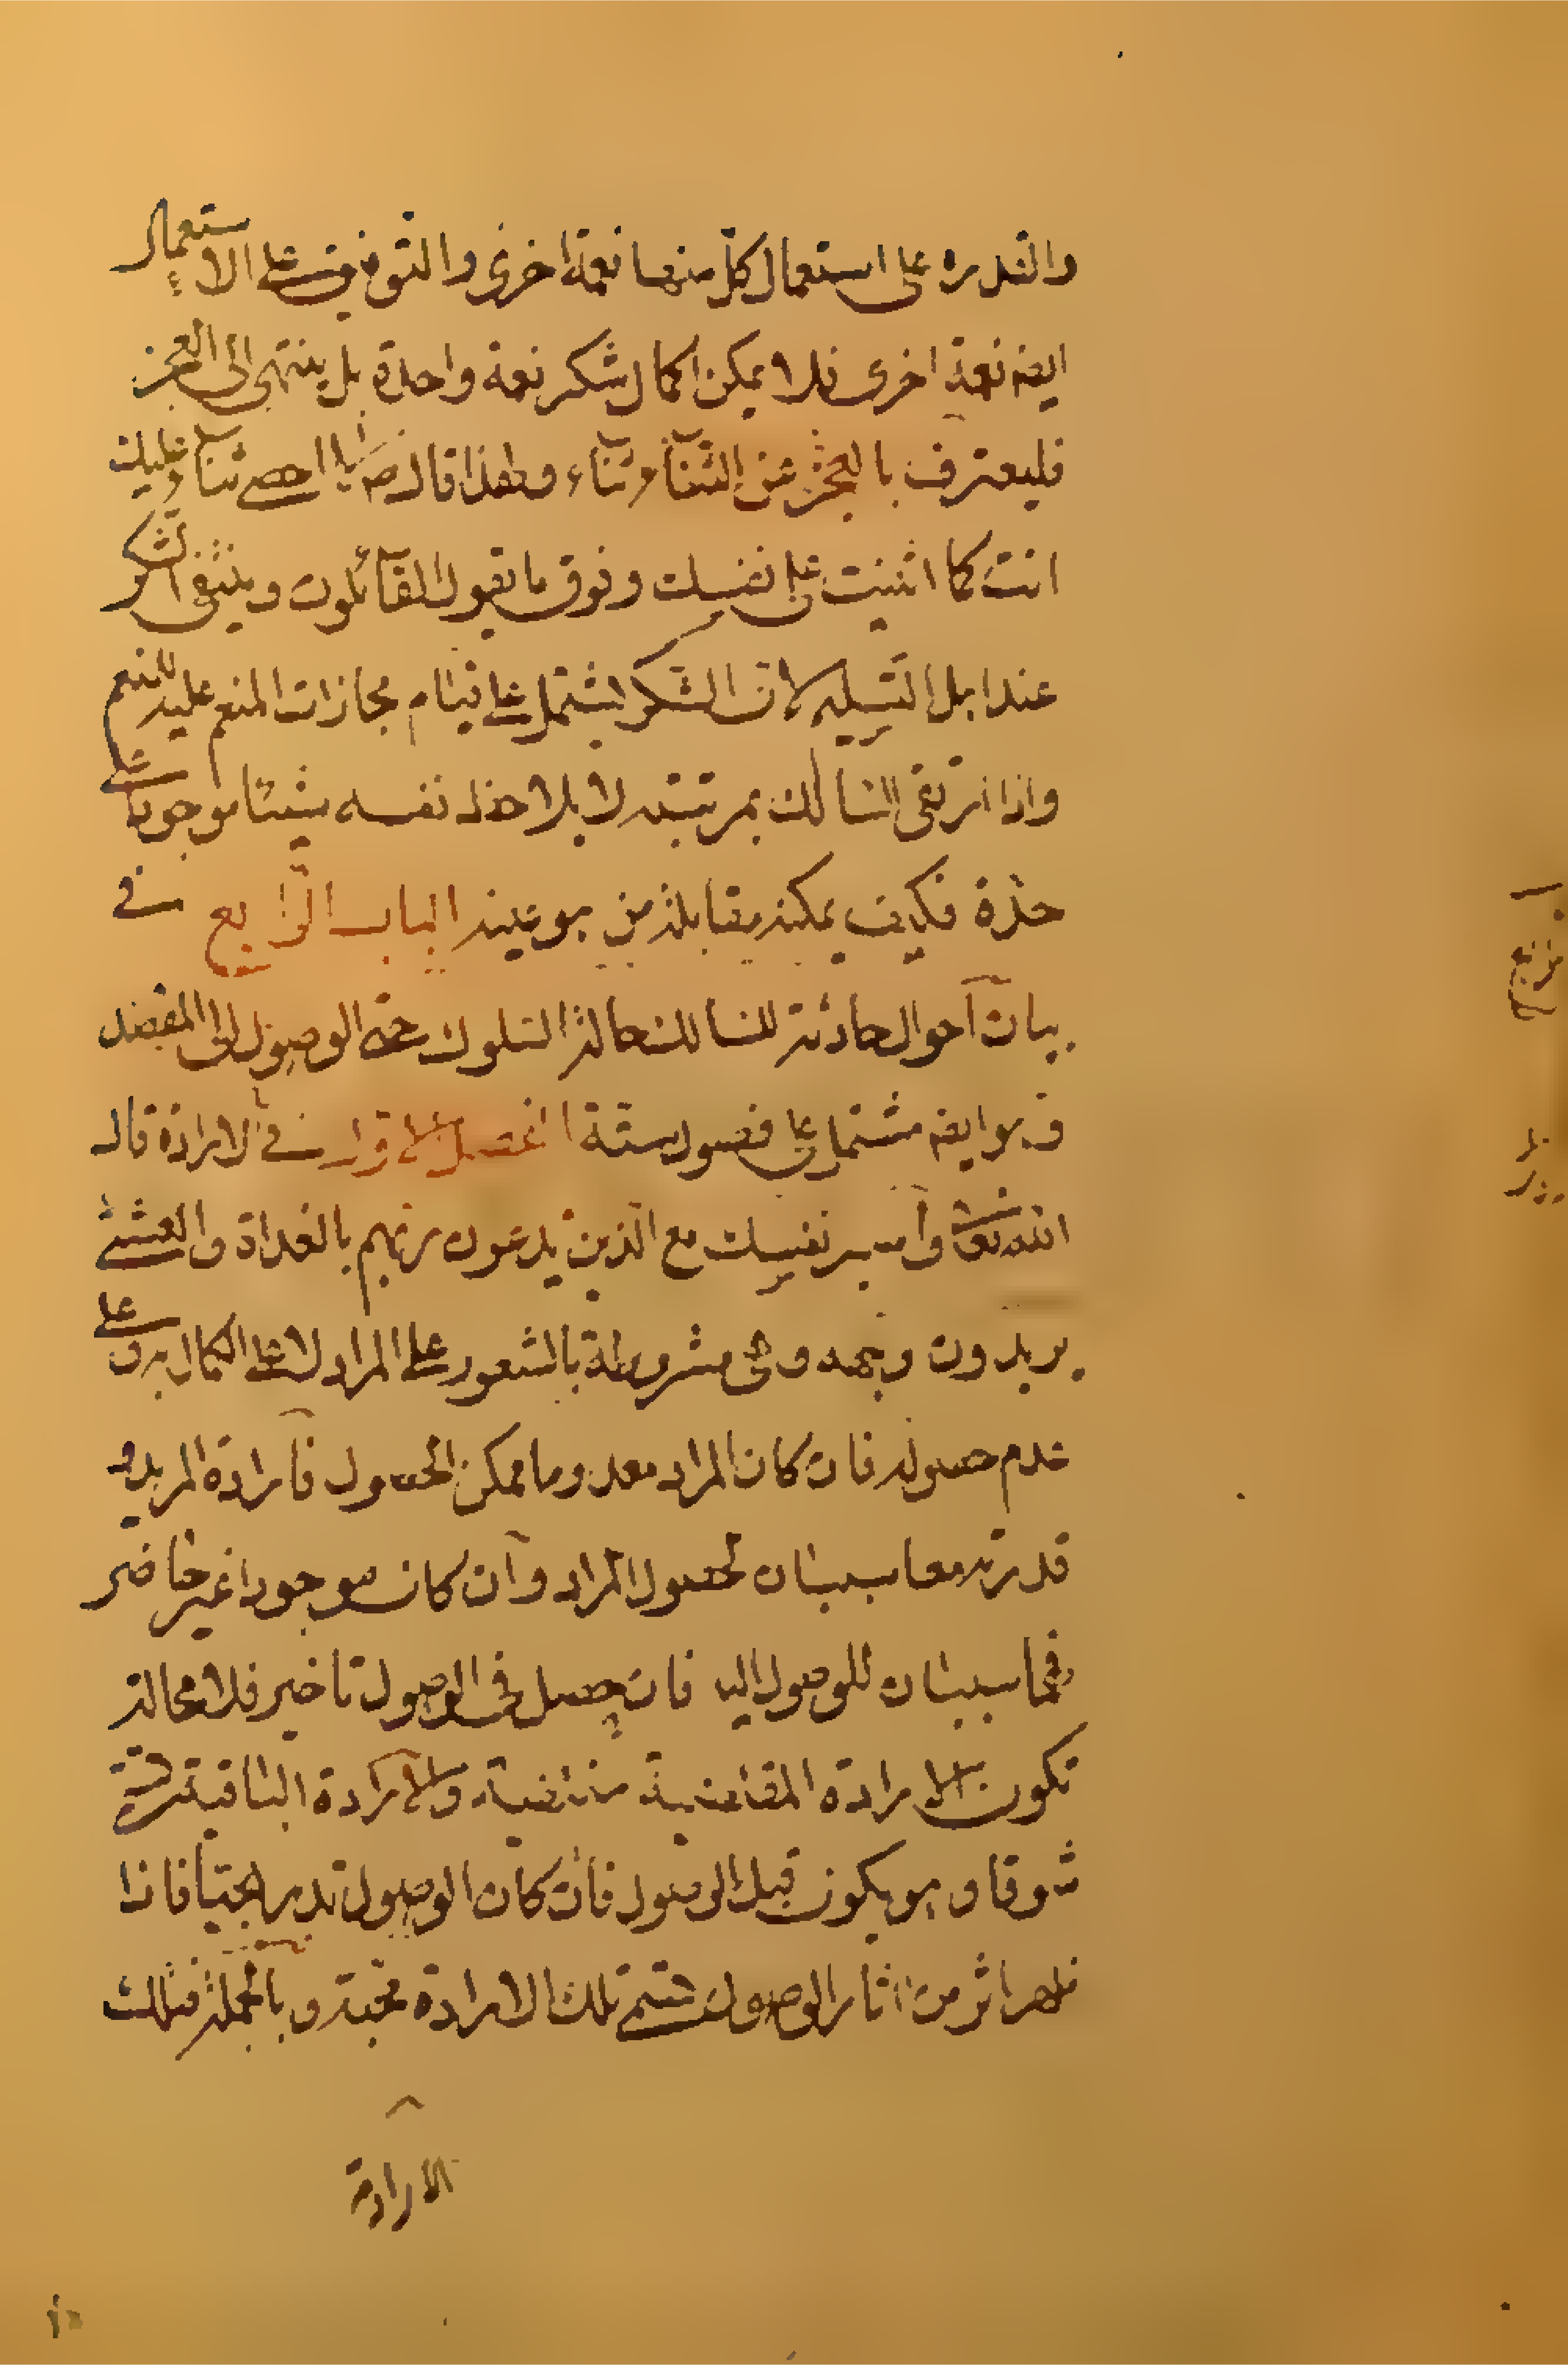 والقدره على استعمال كل منها نعمة اخرى والتوفيق على الاستعمال
ايضه نعمة اخرى فلا يمكن اكمال شكر نعمة واحدة بل ينتهى الى العجز
فليعترف بالعجز عن الثناء ثناء ولهذا قال ص لا احصى ثناء عليك
انت كما اثنيت على نفسك وفوق ما يقول القآئلون وينتفى الشكر
عند اهل التسليم لان الشكر يشتمل على قيام مجازات المنعم عليه للمنعم
واذا ارتقى السالك بمرتبته لا يلاحظ نفسه شيئا موجودا على
حدة فكيف يمكنه مقابلة من هو عينه الباب الرابع فى
بيان آحوال حادثة للسالك حالة السلوك حتى الوصول الى المقصد
وهو ايضه مشتمل على فصول ستة الفصل الاول فى الارادة قال
الله تعالى واصبر نفسك مع الذين يدعون ربهم بالغداة والعشى
يريدون وجهه وهى مشروطة بالشعور على المراد لا على الكمال به وعلى
عدم حصوله فان كان المراد معدوما ممكن الحصول فارادة المريد و
قدرته معا سببان لحصول المراد وآن كان موجودا غير حاضر
فهما سببان للوصول اليه فان حصل فى الوصول تاخير فلا محالة
تكون الارادة المقتضية والارادة الباقية تسمى
شوقا وهو يكون قبل الوصول فان كان الوصول تدريجيا فاذا
ظهر اثر من اثار الوصول تسمى تلك الارادة محبة وبالجملة فتلك
الارادة